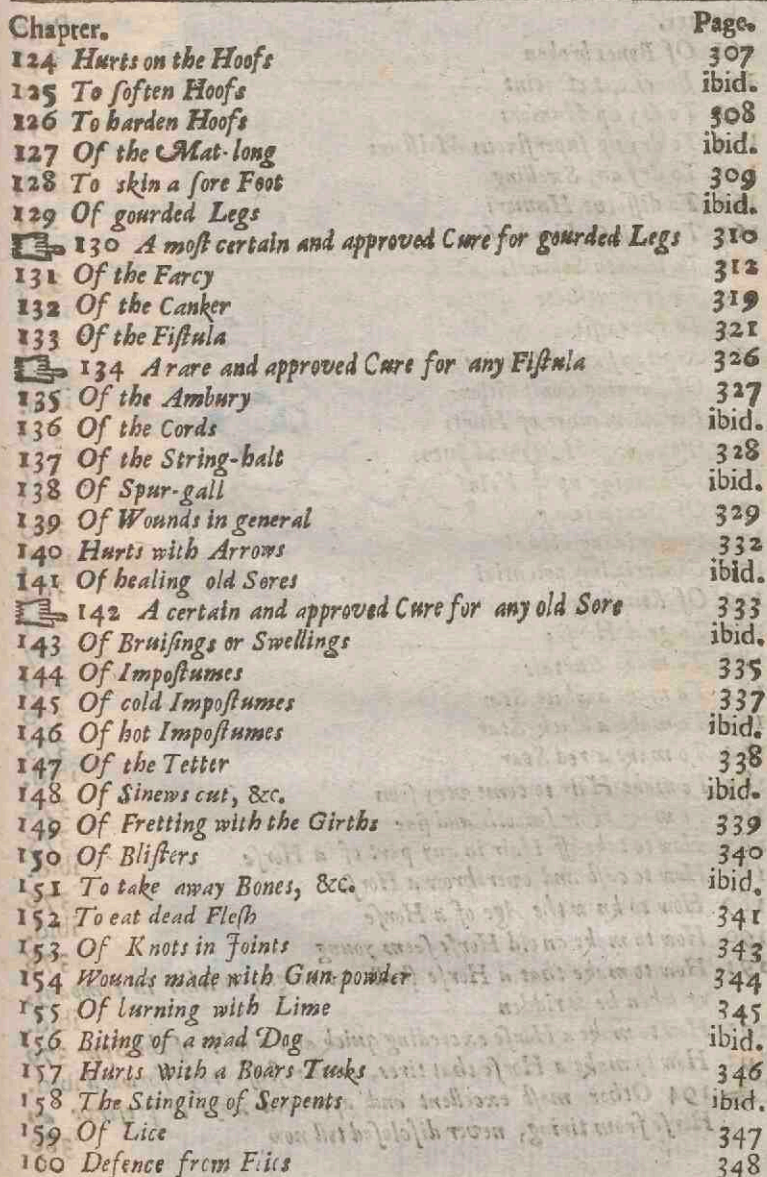 Chapter. Page.
124 Hurts on the Hoofs 307
125 To ſoften Hoofs ibid.
126 To harden Hoofs 308
127 Of the Mat-long ibid.
128 To skin a ſore Foot 309
129 Of gourded Legs ibid.
☞ 130 A moſt certain and approved Cure for gourded Legs 310
131 Of the Farcy 312
132 Of the Canker 319
133 Of the Fiſtula 321
☞ 134 A rare and approved Cure for any Fiſtula 326
135 Of the Ambury 327
136 Of the Cords ibid.
137 Of the String-halt 328
138 Of Spur-gall ibid.
139 Of Wounds in general 329
140 Hurts with Arrows 332
141 Of healing old Sores ibid.
☞ 142 A certain and approved Cure for any old Sore 333
143 Of Bruiſings or Swellings ibid.
144 Of Impoſtumes 335
145 Of cold Impoſtumes 337
146 Of hot Impoſtumes ibid.
147 Of the Tetter 338
148 Of Sinews cut, &c. ibid.
149 Of Fretting with the Girths 339
150 Of Bliſters 340
151 To take away Bones, &c. ibid.
152 To eat dead Fleſh 341
153 Of Knots in Joints 343
154 Wounds made with Gun-powder 344
155 Of lurning with Lime 345
156 Biting of a mad Dog ibid.
157 Hurts with a Boars Tusks 346
158 The Stinging of Serpents ibid.
159 Of Lice 347
160 Defence from Flies 348